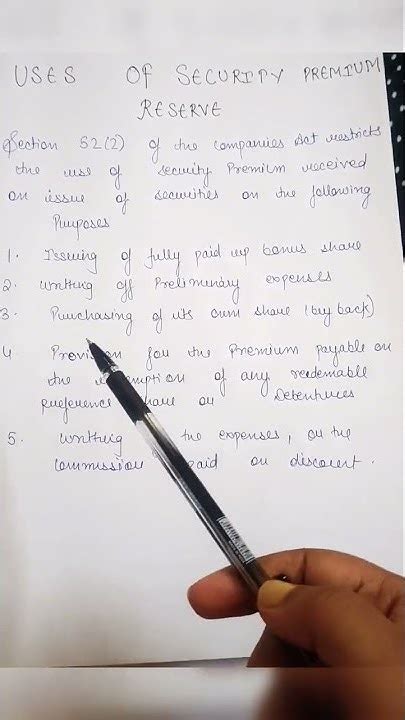 USES OF SECURITY PREMIUM
RESERVE
Section 52(2) of the companies Act restricts
the use of security Premium received
on issue of securities on the following
Purposes
1. Issuing of fully paid up bonus share
2. writing off Preliminary expenses
3. Purchasing of its own share (buy back)
4 Provision for the Premium payable on
the of any redeemable
Preference share or Debentures
5. writing the expenses, or the
commission paid or discount.